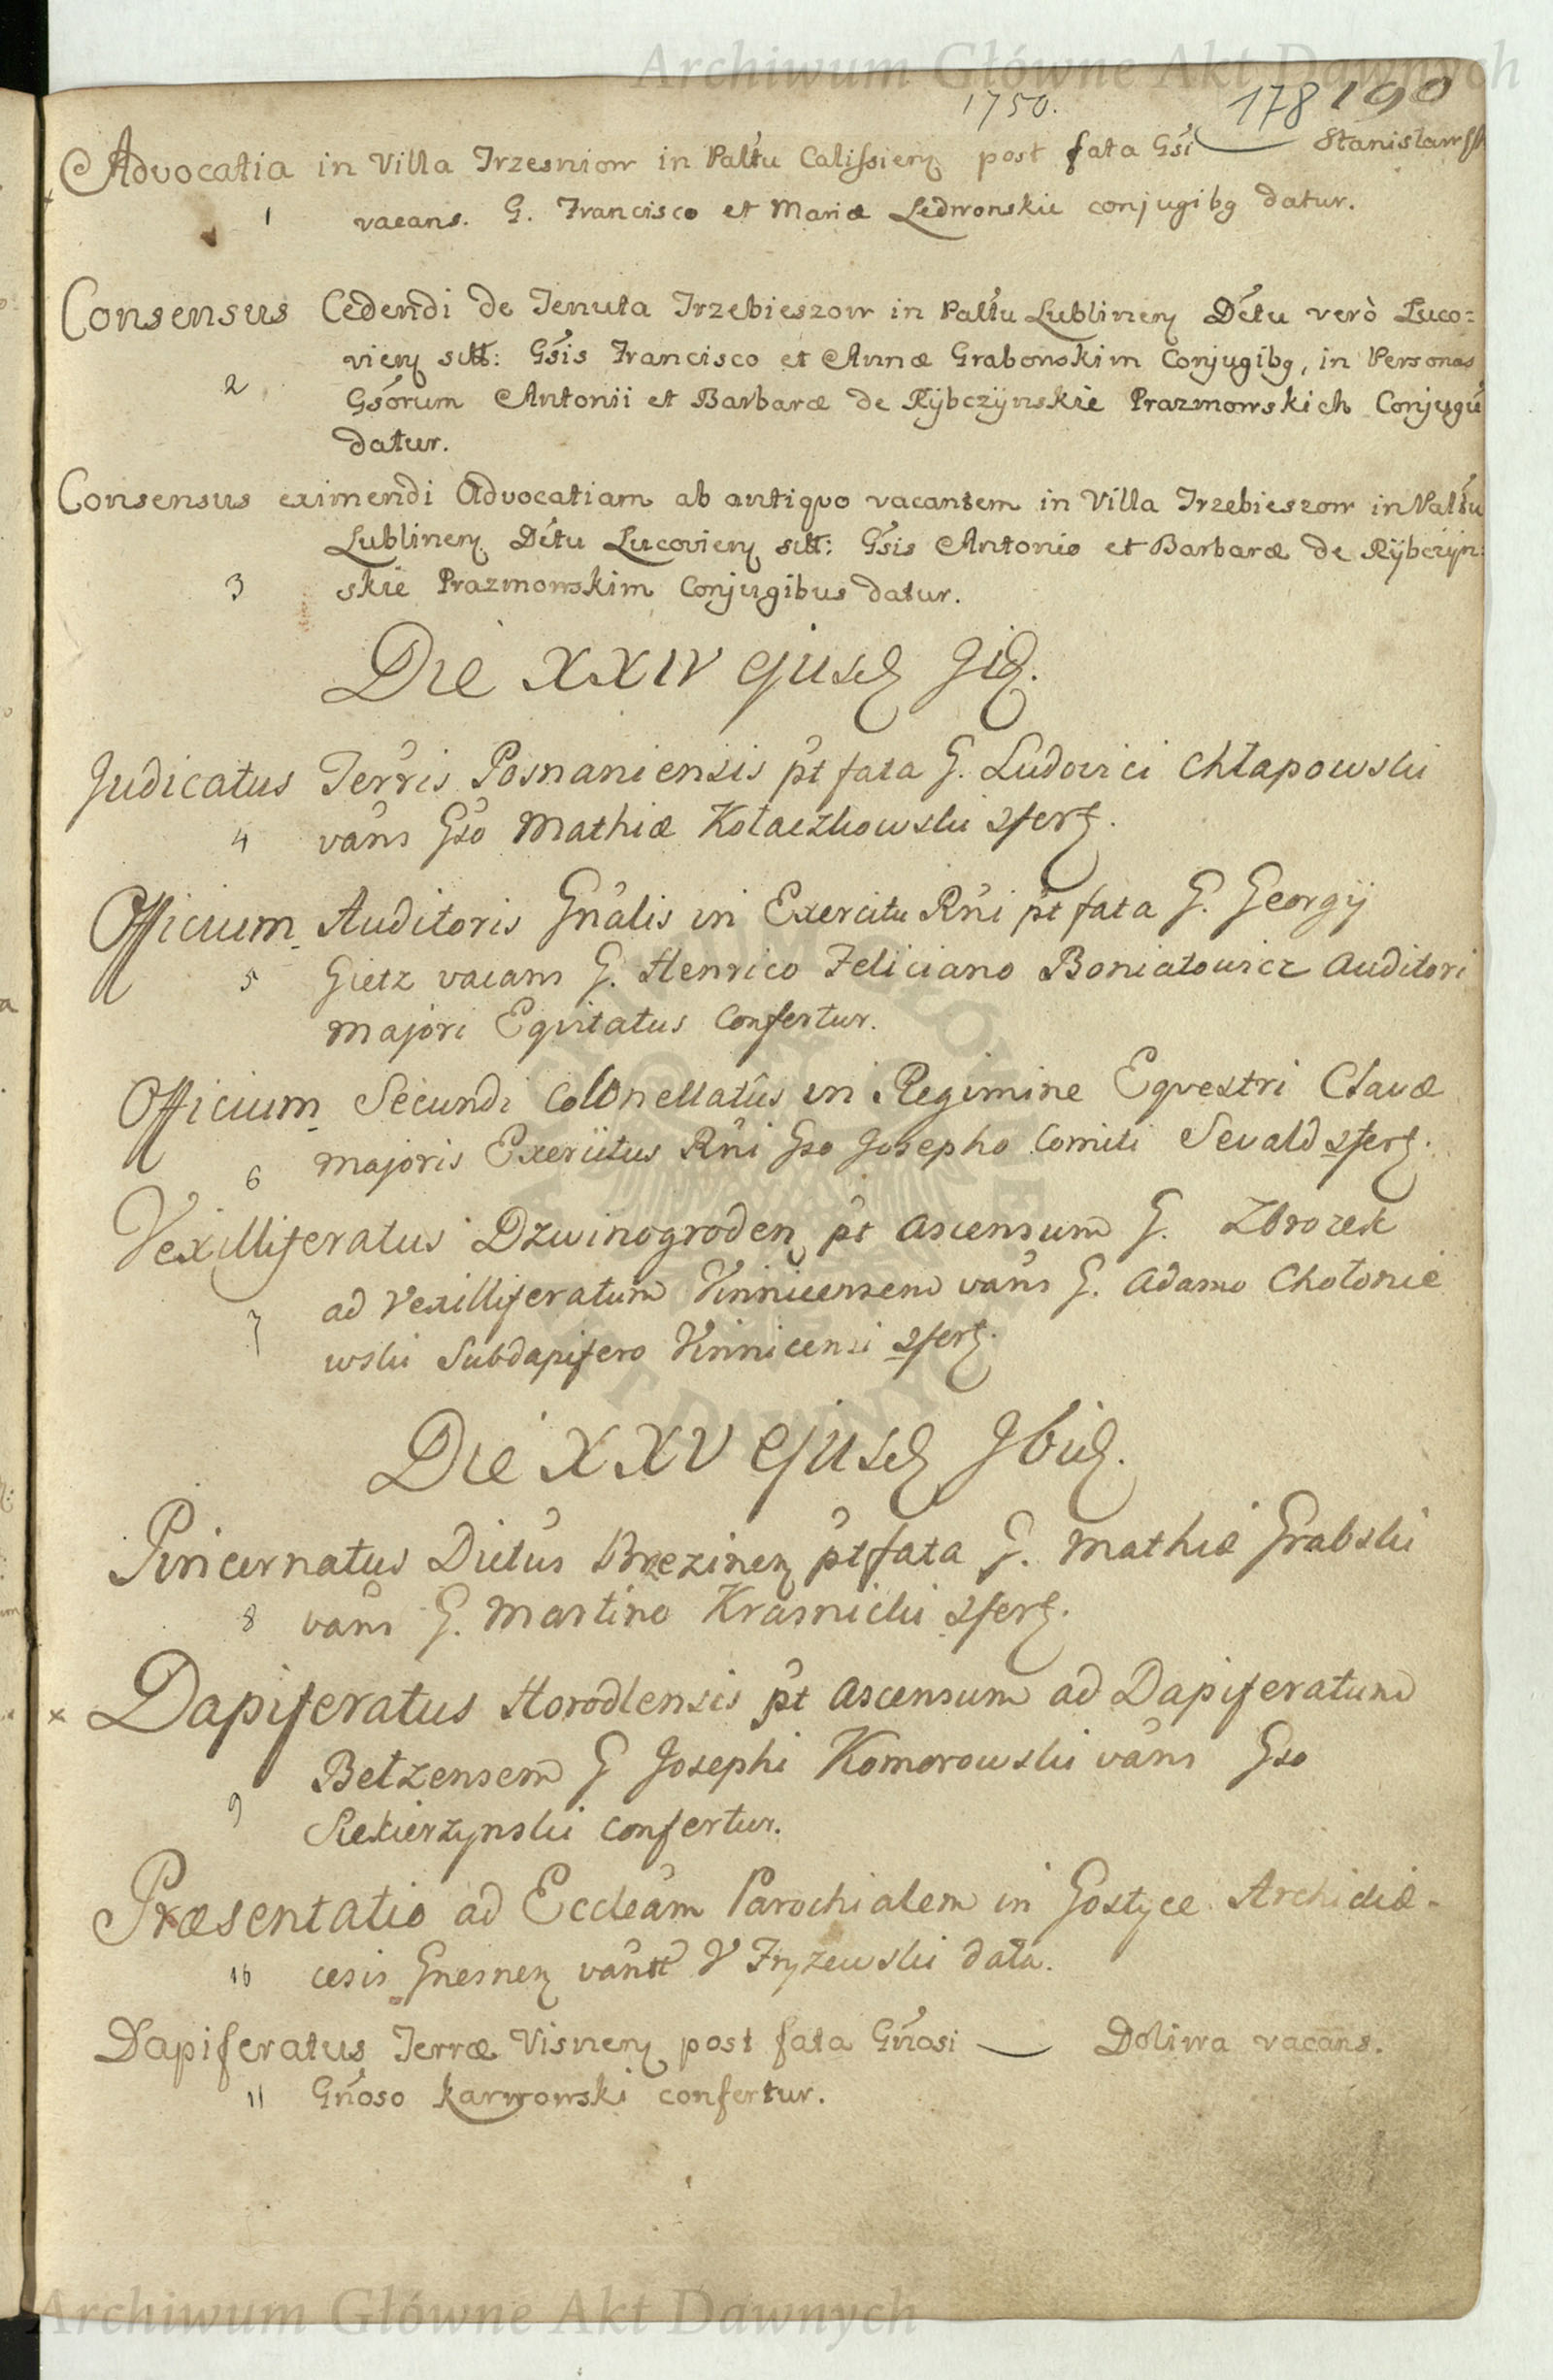 Archiwum Główne Akt Dawnych
1750. 178 190
Advocatia in Villa Trzesniow in Paltu Calissien post fata Gsi — Stanislawsk
1 vacans. G. Francisco et Mariæ Ledwonskie conjugibg datur.
Consensus Cedendi de Tenuta Trzebieszow in Paltu Lublinen Dctu verò Luco=
vien sitt: Gsis Francisco et Annæ Grabowskim Conjugibg, in Personas
2 Gsorum Antonii et Barbaræ de Rÿbczÿnskie Prazmowskich Conjugu
datur.
Consensus eximendi Advocatiam ab antiquo vacantem in Villa Trzebieszow in Paltu
Lublinen Dctu Lucovien sitt: Gsis Antonio et Barbaræ de Rÿbczÿn:
3 skie Prazmowskim Conjugibus datur.
Die XXIV ejusd
Judicatus Terris Posnaniensis pt fata G. Ludovici Chłapowski
4 vans Gso Mathiæ Kołaczkowski 2fert.
Officium Auditoris Gnalis in Exercitu Rni pt fata G. Georgij
5 Gietz vacans G. Henrico Feliciano Boniatowicz Auditori
Majori Equitatus Confertur.
Officium Secundi Colonellatûs in Regimine Equestri Clavæ
6 Majoris Exercitus Rni Gso Josepho Comiti Sevald 2fert.
Vexilliferatus Dzwinogroden pt Ascensum G. Zbrozek
7 ad Vexilliferatum Vinnicensem vans G. Adamo Chołonie
wski Subdapifero Vinnicensi 2fert.
Die XXV ejusd
Pincernatus Dictus Brzezinen pt fata G. Mathiæ Grabski
8 vans G. Martino Krasnicki 2fert.
x Dapiferatus Horodlensis pt Ascensum ad Dapiferatum
Bełzensem G Josephi Komorowski vans Gso
9 Siekierzynski confertur.
Præsentatio ad Eccleam Parochialem in Gostyce Archidiæ-
10 cesis Gnesnen vantt V Fryzewski data.
Dapiferatus Terræ Visnen post fata Gnosi — Doliwa vacans.
11 Gnoso Karwowski confertur.
Archiwum Główne Akt Dawnych